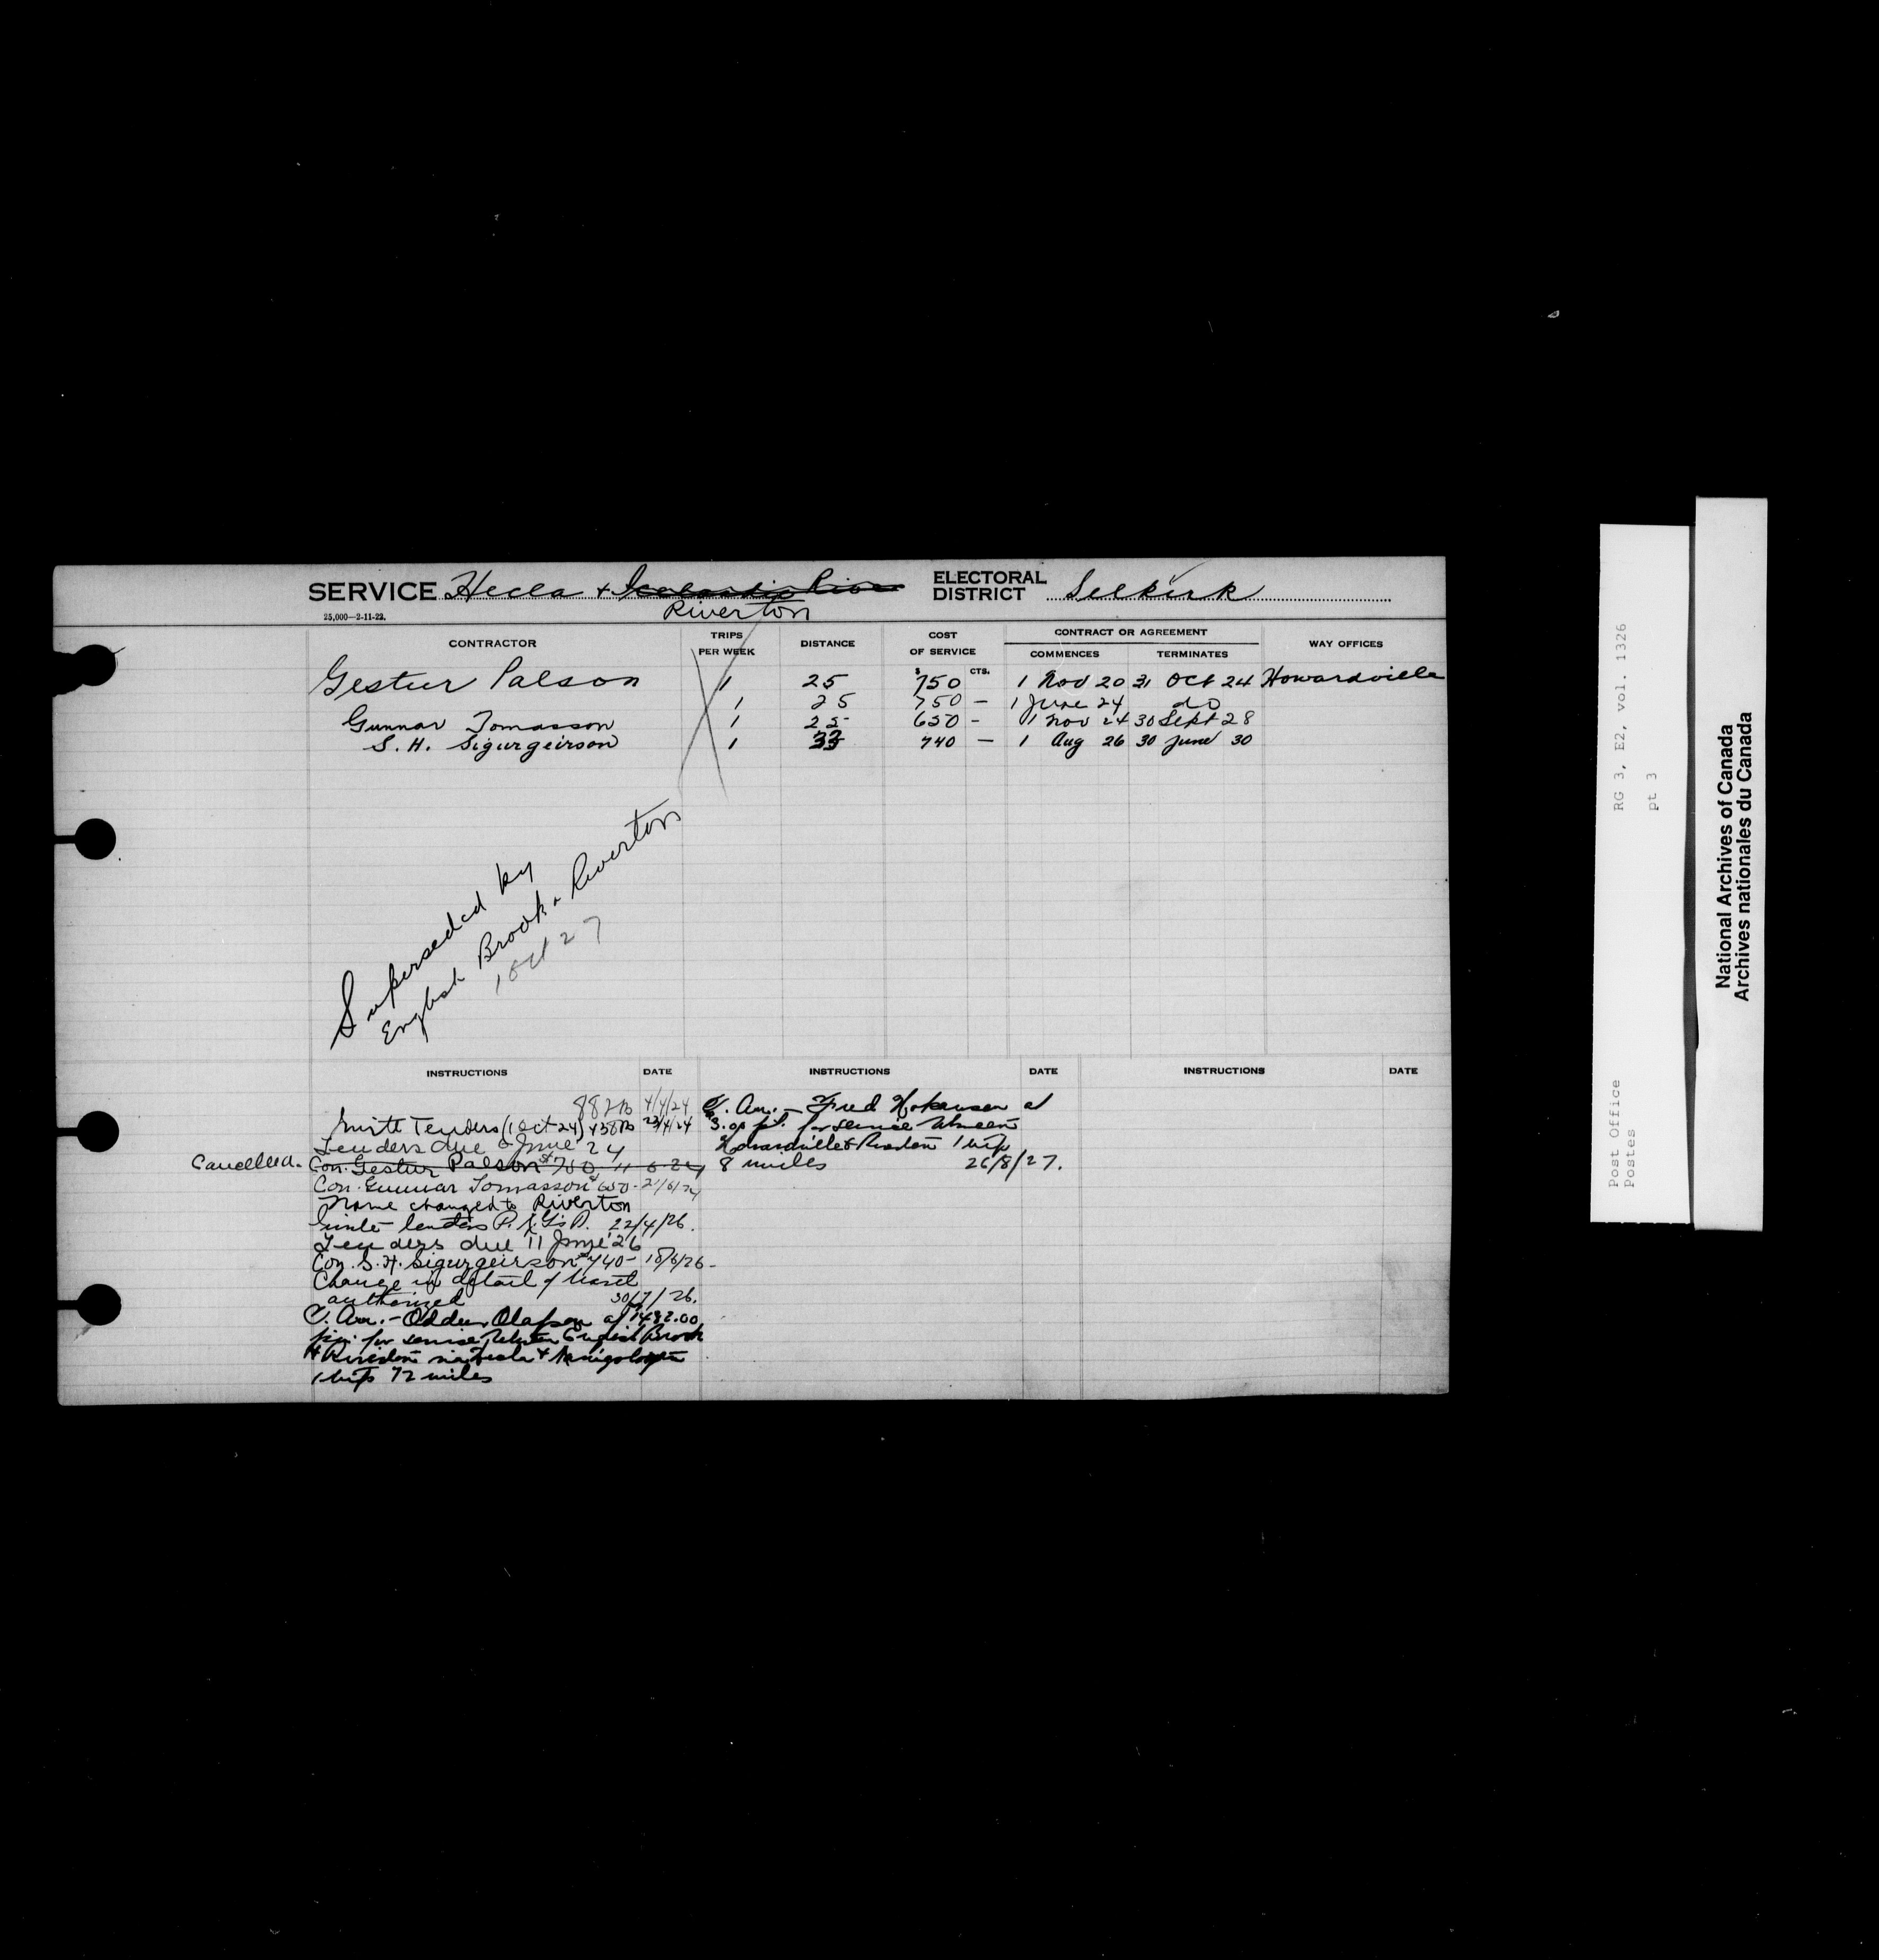 SERVICE Hecla & Icelandic River ELECTORAL DISTRICT Selkirk
25,000—2-11-23. Riverton
CONTRACTOR TRIPS PER WEEK DISTANCE COST OF SERVICE CONTRACT OR AGREEMENT WAY OFFICES
$ CTS. COMMENCES TERMINATES
Gestur Palson 1 25 750 1 Nov 20 31 Oct 24 Howardville
1 25 750 — 1 June 24 do
Gunnar Tomasson 1 25 650 - 1 Nov 24 30 Sept 28
S. H. Sigurgeirson 1 33 740 — 1 Aug 26 30 June 30
Superseded by
English Brook & Riverton
1 Oct 27
INSTRUCTIONS DATE INSTRUCTIONS DATE INSTRUCTIONS DATE
4/4/24
Invite Tenders (1 Oct 24) 23/4/24
Tenders due 6 June 24
Cancelled. Con. Gestur Palson $750 11 6 24
Con. Gunnar Tomasson $650- 21/6/24
Name changed to Riverton
Invite tenders 22/4/26.
Tenders due 11 June 26
Con. S. H. Sigurgeirson $740- 18/6/26-
Change in detail of travel
authorized 30/7/26.
Olafson at $1492.00
for service between English Brook
& Riverton via Hecla &
1 trip 72 miles
Fred at
for service between
Howardville & Riverton 1 trip
8 miles 26/8/27.
RG 3, E2, vol. 1326
pt 3
Post Office
Postes
National Archives of Canada
Archives nationales du Canada